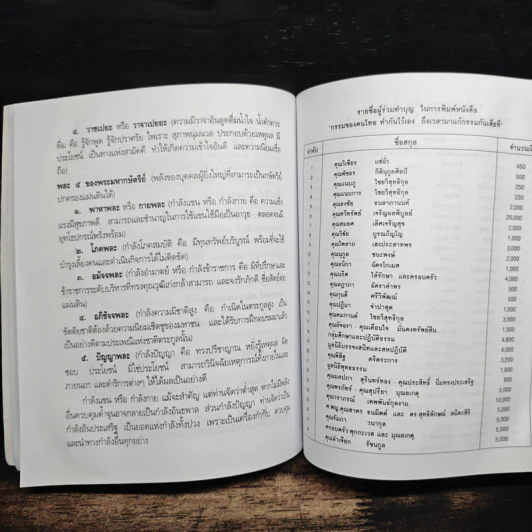 ๔. วาชเปยะ หรือ วาจาเปยยะ (ความมีวาจาอันดูดดื่มน้ำใจ น้ำคำควร
ดื่ม คือ รู้จักพูด รู้จักปราศรัย ไพเราะ สุภาพนุ่มนวล ประกอบด้วยเหตุผล มี
ประโยชน์ เป็นทางแห่งสามัคคี ทำให้เกิดความเข้าใจอันดี และความนิยมเชื่อ
ถือ)
พละ ๕ ของพระมหากษัตริย์ (พลังของบุคคลผู้ยิ่งใหญ่ที่สามารถเป็นกษัตริย์
ปกครองแผ่นดินได้)
๑. พาหาพละ หรือ กายพละ (กำลังแขน หรือ กำลังกาย คือ ความแข็ง
แรงมีสุขภาพดี สามารถและชำนาญในการใช้แขนใช้มือเป็นอาวุธ ตลอดจนมี
ยุทโธปกรณ์พรั่งพร้อม)
๒. โภคพละ (กำลังโภคสมบัติ คือ มีทุนทรัพย์บริบูรณ์ พร้อมที่จะใช้
บำรุงเลี้ยงคนและดำเนินกิจการได้ไม่ติดขัด)
๓. อมัจจพละ (กำลังอำมาตย์ หรือ กำลังข้าราชการ คือ มีที่ปรึกษาและ
ข้าราชการระดับบริหารที่ทรงคุณวุฒิเก่งกล้าสามารถ และจงรักภักดี ซื่อสัตย์ต่อ
แผ่นดิน)
๔. อภิชัจจพละ (กำลังความมีชาติสูง คือ กำเนิดในตระกูลสูง เป็น
ขัตติยชาติต้องด้วยความนิยมเชิดชูของมหาชน และได้รับการฝึกอบรมมาแล้ว
เป็นอย่างดีตามประเพณีแห่งชาติตระกูลนั้น)
๕. ปัญญาพละ (กำลังปัญญา คือ ทรงปรีชาญาณ หยั่งรู้เหตุผล ผิด
ชอบ ประโยชน์ มิใช่ประโยชน์ สามารถวินิจฉัยเหตุการณ์ทั้งภายในและ
ภายนอก และดำริการต่างๆ ให้ได้ผลเป็นอย่างดี
กำลังแขน หรือ กำลังกาย แม้จะสำคัญ แต่ท่านจัดว่าต่ำสุด หากไม่มีพลัง
อื่นควบคุมค้ำจุนอาจกลายเป็นกำลังอันธพาล ส่วนกำลังปัญญา ท่านจัดว่าเป็น
กำลังอันประเสริฐ เป็นยอดแห่งกำลังทั้งปวง เพราะเป็นเครื่องกำกับ ควบคุม
และนำทางกำลังอื่นทุกอย่าง
รายชื่อผู้ร่วมทำบุญ ในการพิมพ์หนังสือ
"กรรมของคนไทย ทำกันไว้เอง ถึงเวลามาแก้กรรมกันเสียที"
ลำดับ ชื่อสกุล
คุณวิเชียร แซ่ถ้ำ 450
คุณพัชรา 500
คุณแนบญ ไชยวิสุทธิกุล 250
ไชยวิสุทธิกุล 250
คุณธงชัย ธนดากานนท์ 2,000
คุณทวีทรัพย์ เจริญผลพิบูลย์ 20,000
คุณสมยศ เลิศเจริญสุข 2,000
คุณวิชัย บูรณภิญโญ 1,000
คุณไพลาภ เฮงประสาทพร 3,000
คุณนุกูล ชนะพงษ์ 3,000
คุณวนิดา 3,000
คุณนริศ ไล้รักษา และครอบครัว 4,000
คุณสุภาภา อัคราคำพร 3,000
คุณกุนที ศรีวิพัฒน์ 3,000
คุณปฏิมา จำปาสุด 3,000
คุณสมกานต์ ไชยวิสุทธิกุล 3,000
3,000
กลุ่มศึกษาและปฏิบัติธรรม 3,000
3,000
คุณพิสิฐ 3,000
มูลนิธิพุทธธรรม 3,000
3,000
5,000
คุณวราภรณ์ เทพพันธ์กุลงาม 10,000
5,000
คุณรัมภา วนากุล 3,000
5,000
คุณลำเจียก รัชนกูล 3,000